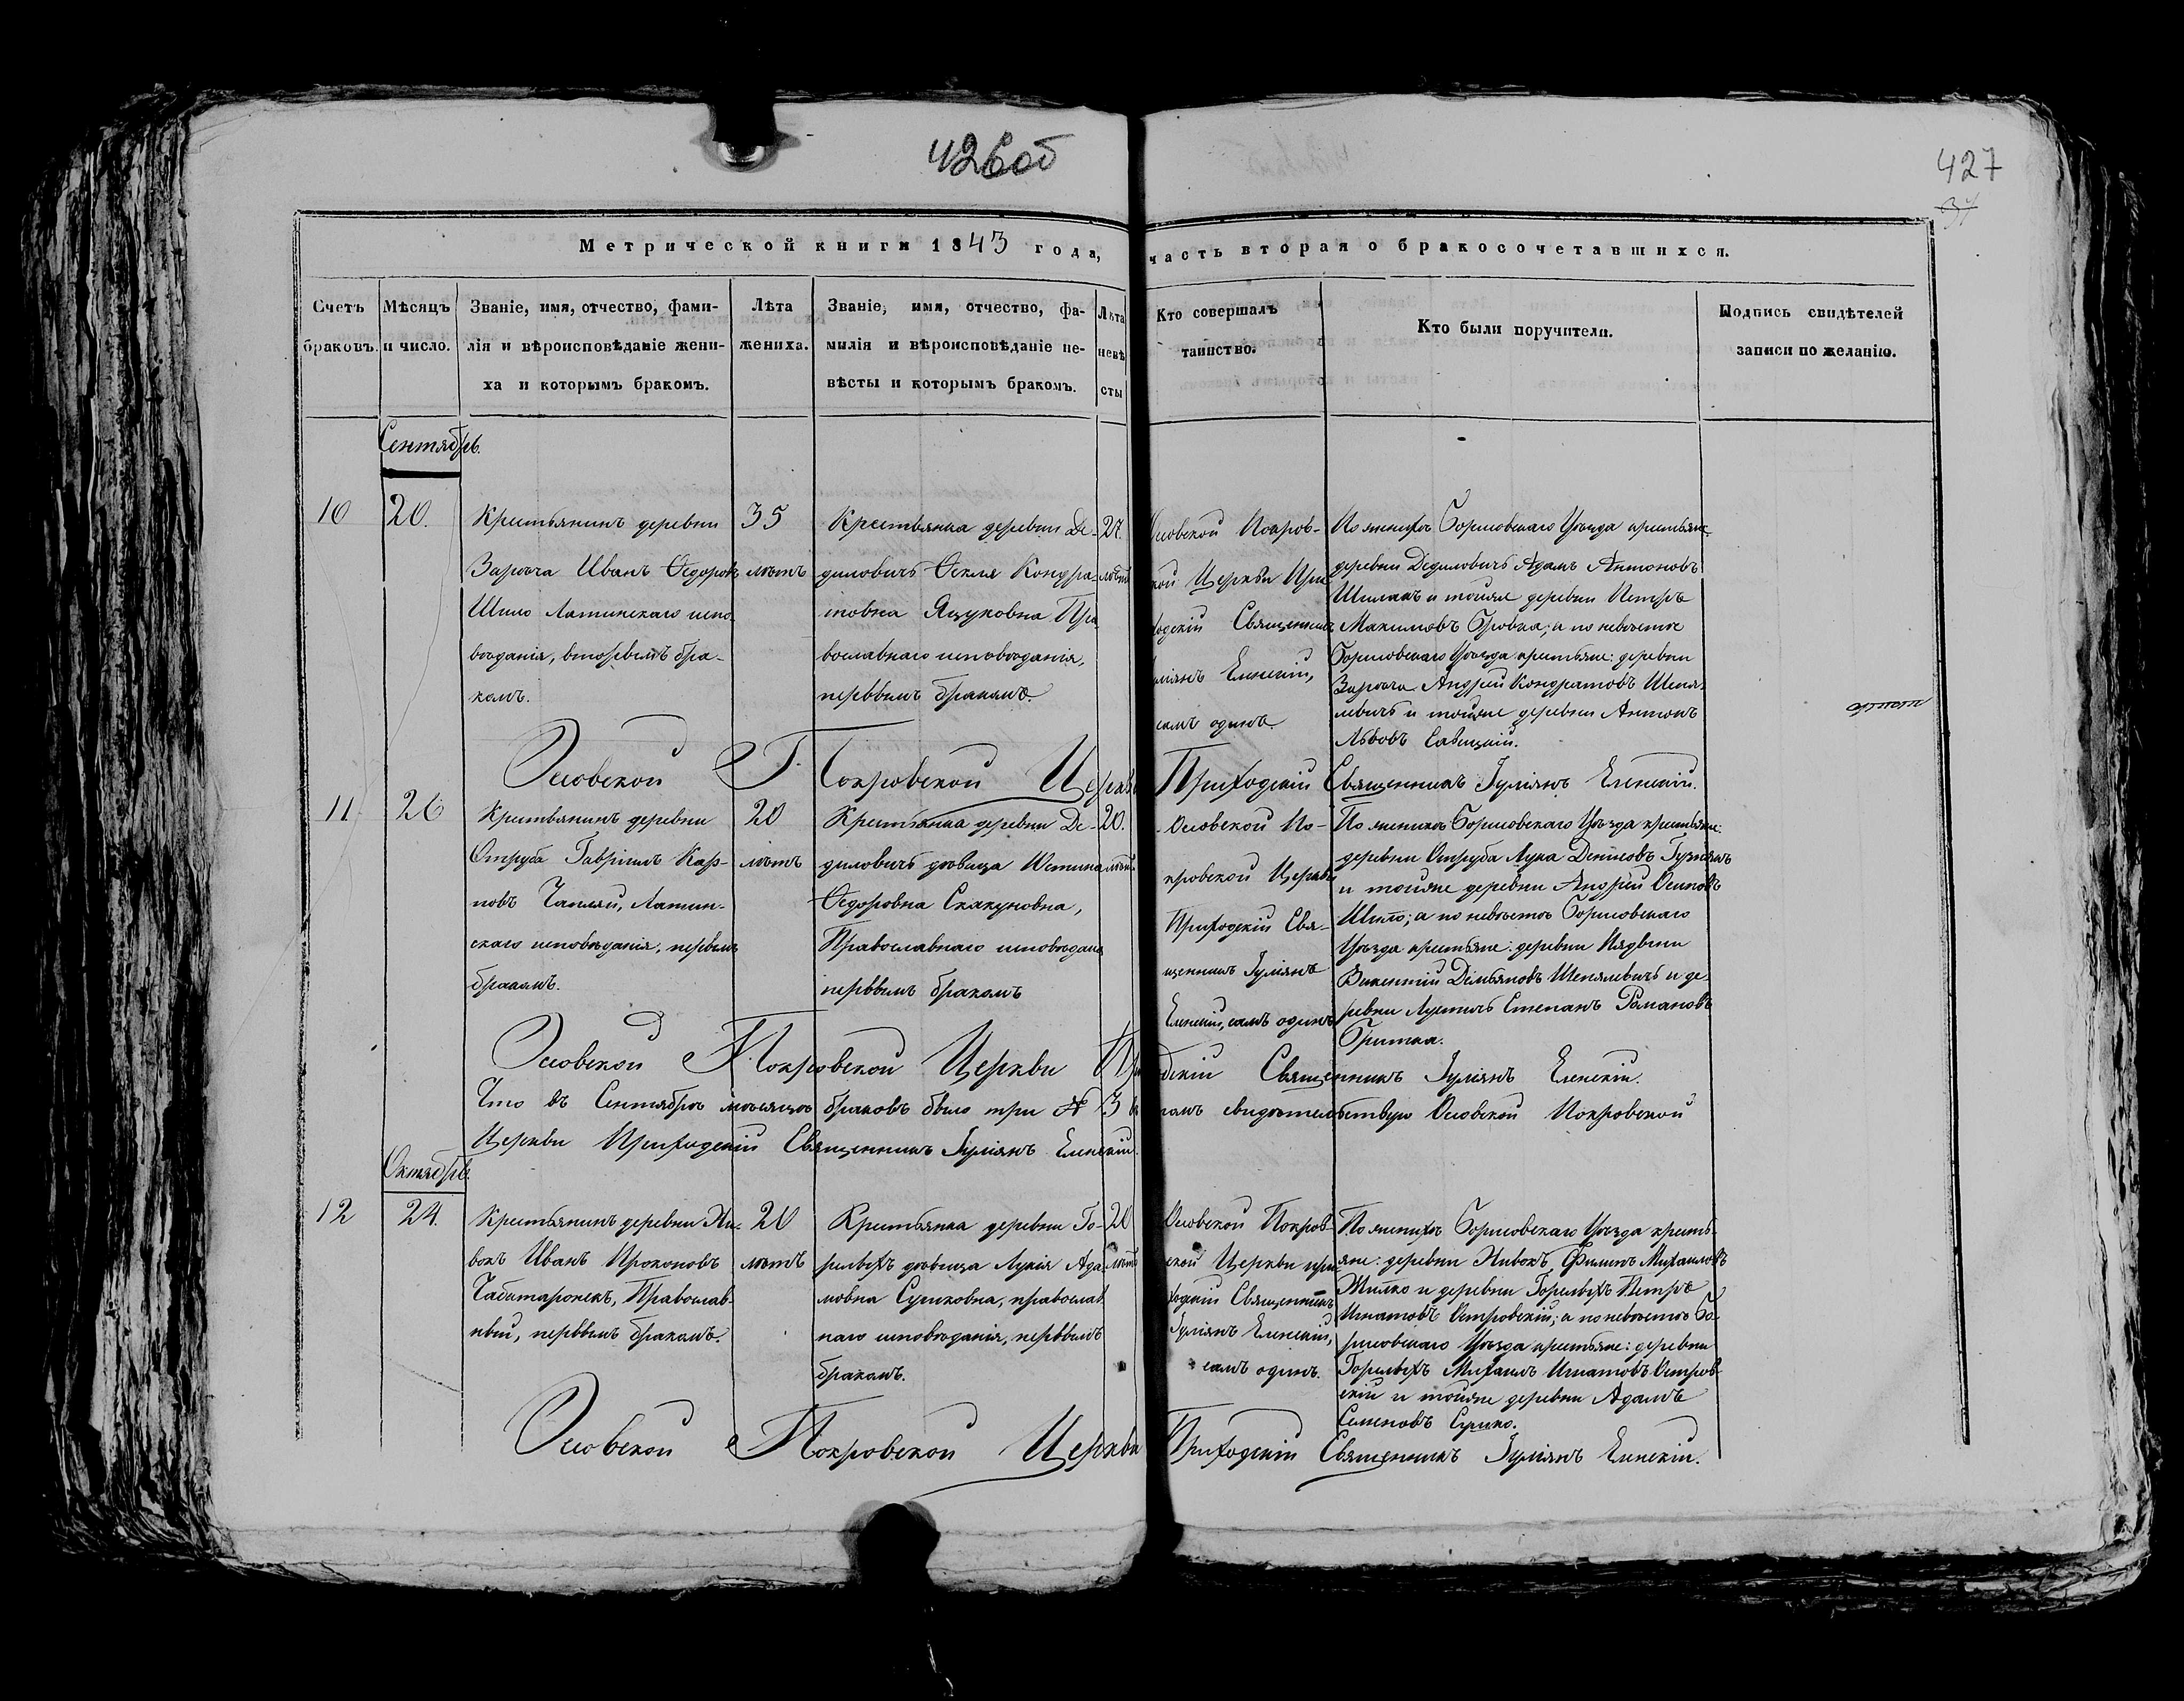 426об
427
34
Метрической книги 1843 года, часть вторая о бракосочетавшихся.
Счетъ браковъ.
Мѣсяцъ и число.
Званіе, имя, отчество, фами-
лія и вѣроисповѣданіе жени-
ха и которымъ бракомъ.
Лѣта жениха.
Званіе, имя, отчество, фа-
милія и вѣроисповѣданіе не-
вѣсты и которымъ бракомъ.
Лѣта невѣ сты
Кто совершалъ
таинство.
Кто были поручители.
Подпись свидѣтелей
записи по желанію.
Сентябрь.
10
20.
Крестьянинъ деревни
Зарѣча Иванъ Ѳедоровъ
Шило Латинскаго испо-
вѣданія, вторымъ бра-
комъ.
35
лѣтъ
Крестьянка деревни Де-
диловичъ Ѳекля Кондра-
товна Яцуковна Пра-
вославнаго исповѣданія,
первымъ бракомъ.
27.
лѣтъ
Осовской Покров-
ской Церкви При-
ходскій Священникъ
Іуліянъ Еленскій,
самъ одинъ.
По женихѣ Борисовскаго Уѣзда крестьяне
деревни Дедиловичъ Адамъ Антоновъ
и тойже деревни Петръ
Максимовъ Бровка; а по невѣстѣ
Борисовскаго Уѣзда крестьяне: деревни
Зарѣча Андрей Кондратовъ Шепе-
левичъ и тойже деревни Антонъ
Львовъ Савицкій.
Осовской Покровской Церкви Приходскій Священникъ Іуліянъ Еленскій.
11
26
Крестьянинъ деревни
Отруба Гавріилъ Кар-
повъ Чапляй, Латин-
скаго исповѣданія, первымъ
бракомъ.
20
лѣтъ
Крестьянка деревни Де-
диловичъ дѣвица Устина
Ѳедоровна Скакуновна,
Православнаго исповѣданія
первымъ бракомъ
20.
лѣтъ
Осовской По-
кровской Церкви
Приходскій Свя-
щенникъ Іуліянъ
Еленскій, самъ одинъ
По женихѣ Борисовскаго Уѣзда крестьяне:
деревни Отруба Лука Денисовъ
и тойже деревни Андрей Осиповъ
Шило; а по невѣстѣ Борисовскаго
Уѣзда крестьяне: деревни
Викентій Демьяновъ Шепелевичъ и де-
ревни Степанъ Романовъ
Бритка.
Осовской Покровской Церкви Приходскій Священникъ Іуліянъ Еленскій.
Что въ Сентябрѣ мѣсяцѣ браковъ было три № 3 въ томъ свидѣтельствую Осовской Покровской
Церкви Приходскій Священникъ Іуліянъ Еленскій.
Октябрь.
12
24.
Крестьянинъ деревни Жи-
вокъ Иванъ Прокоповъ
Чабатаронекъ, Православ-
ный, первымъ бракомъ.
20
лѣтъ
Крестьянка деревни Го-
релыхъ дѣвица Лукія Ада-
мовна Сушковна, православ-
наго исповѣданія, первымъ
бракомъ.
20
лѣтъ
Осовской Покров-
ской Церкви при-
ходскій Священникъ
Іуліянъ Еленскій,
самъ одинъ.
По женихѣ Борисовскаго Уѣзда кресть-
яне: деревни Живокъ Филипъ Михаиловъ
Жилко и деревни Горелыхъ Петръ
Игнатовъ Островскій; а по невѣстѣ Бо-
рисовскаго Уѣзда крестьяне: деревни
Горелыхъ Михаилъ Игнатовъ Остров-
скій и тойже деревни Адамъ
Семеновъ Сушко.
Осовской Покровской Церкви Приходскій Священникъ Іуліянъ Еленскій.